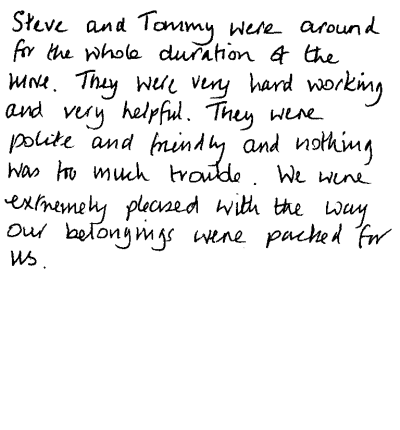 Steve and Tommy were around
for the whole duration of the
move. They were very hard working
and very helpful. They were
polite and friendly and nothing
was too much trouble. We were
extremely pleased with the way
our belongings were packed for
us.